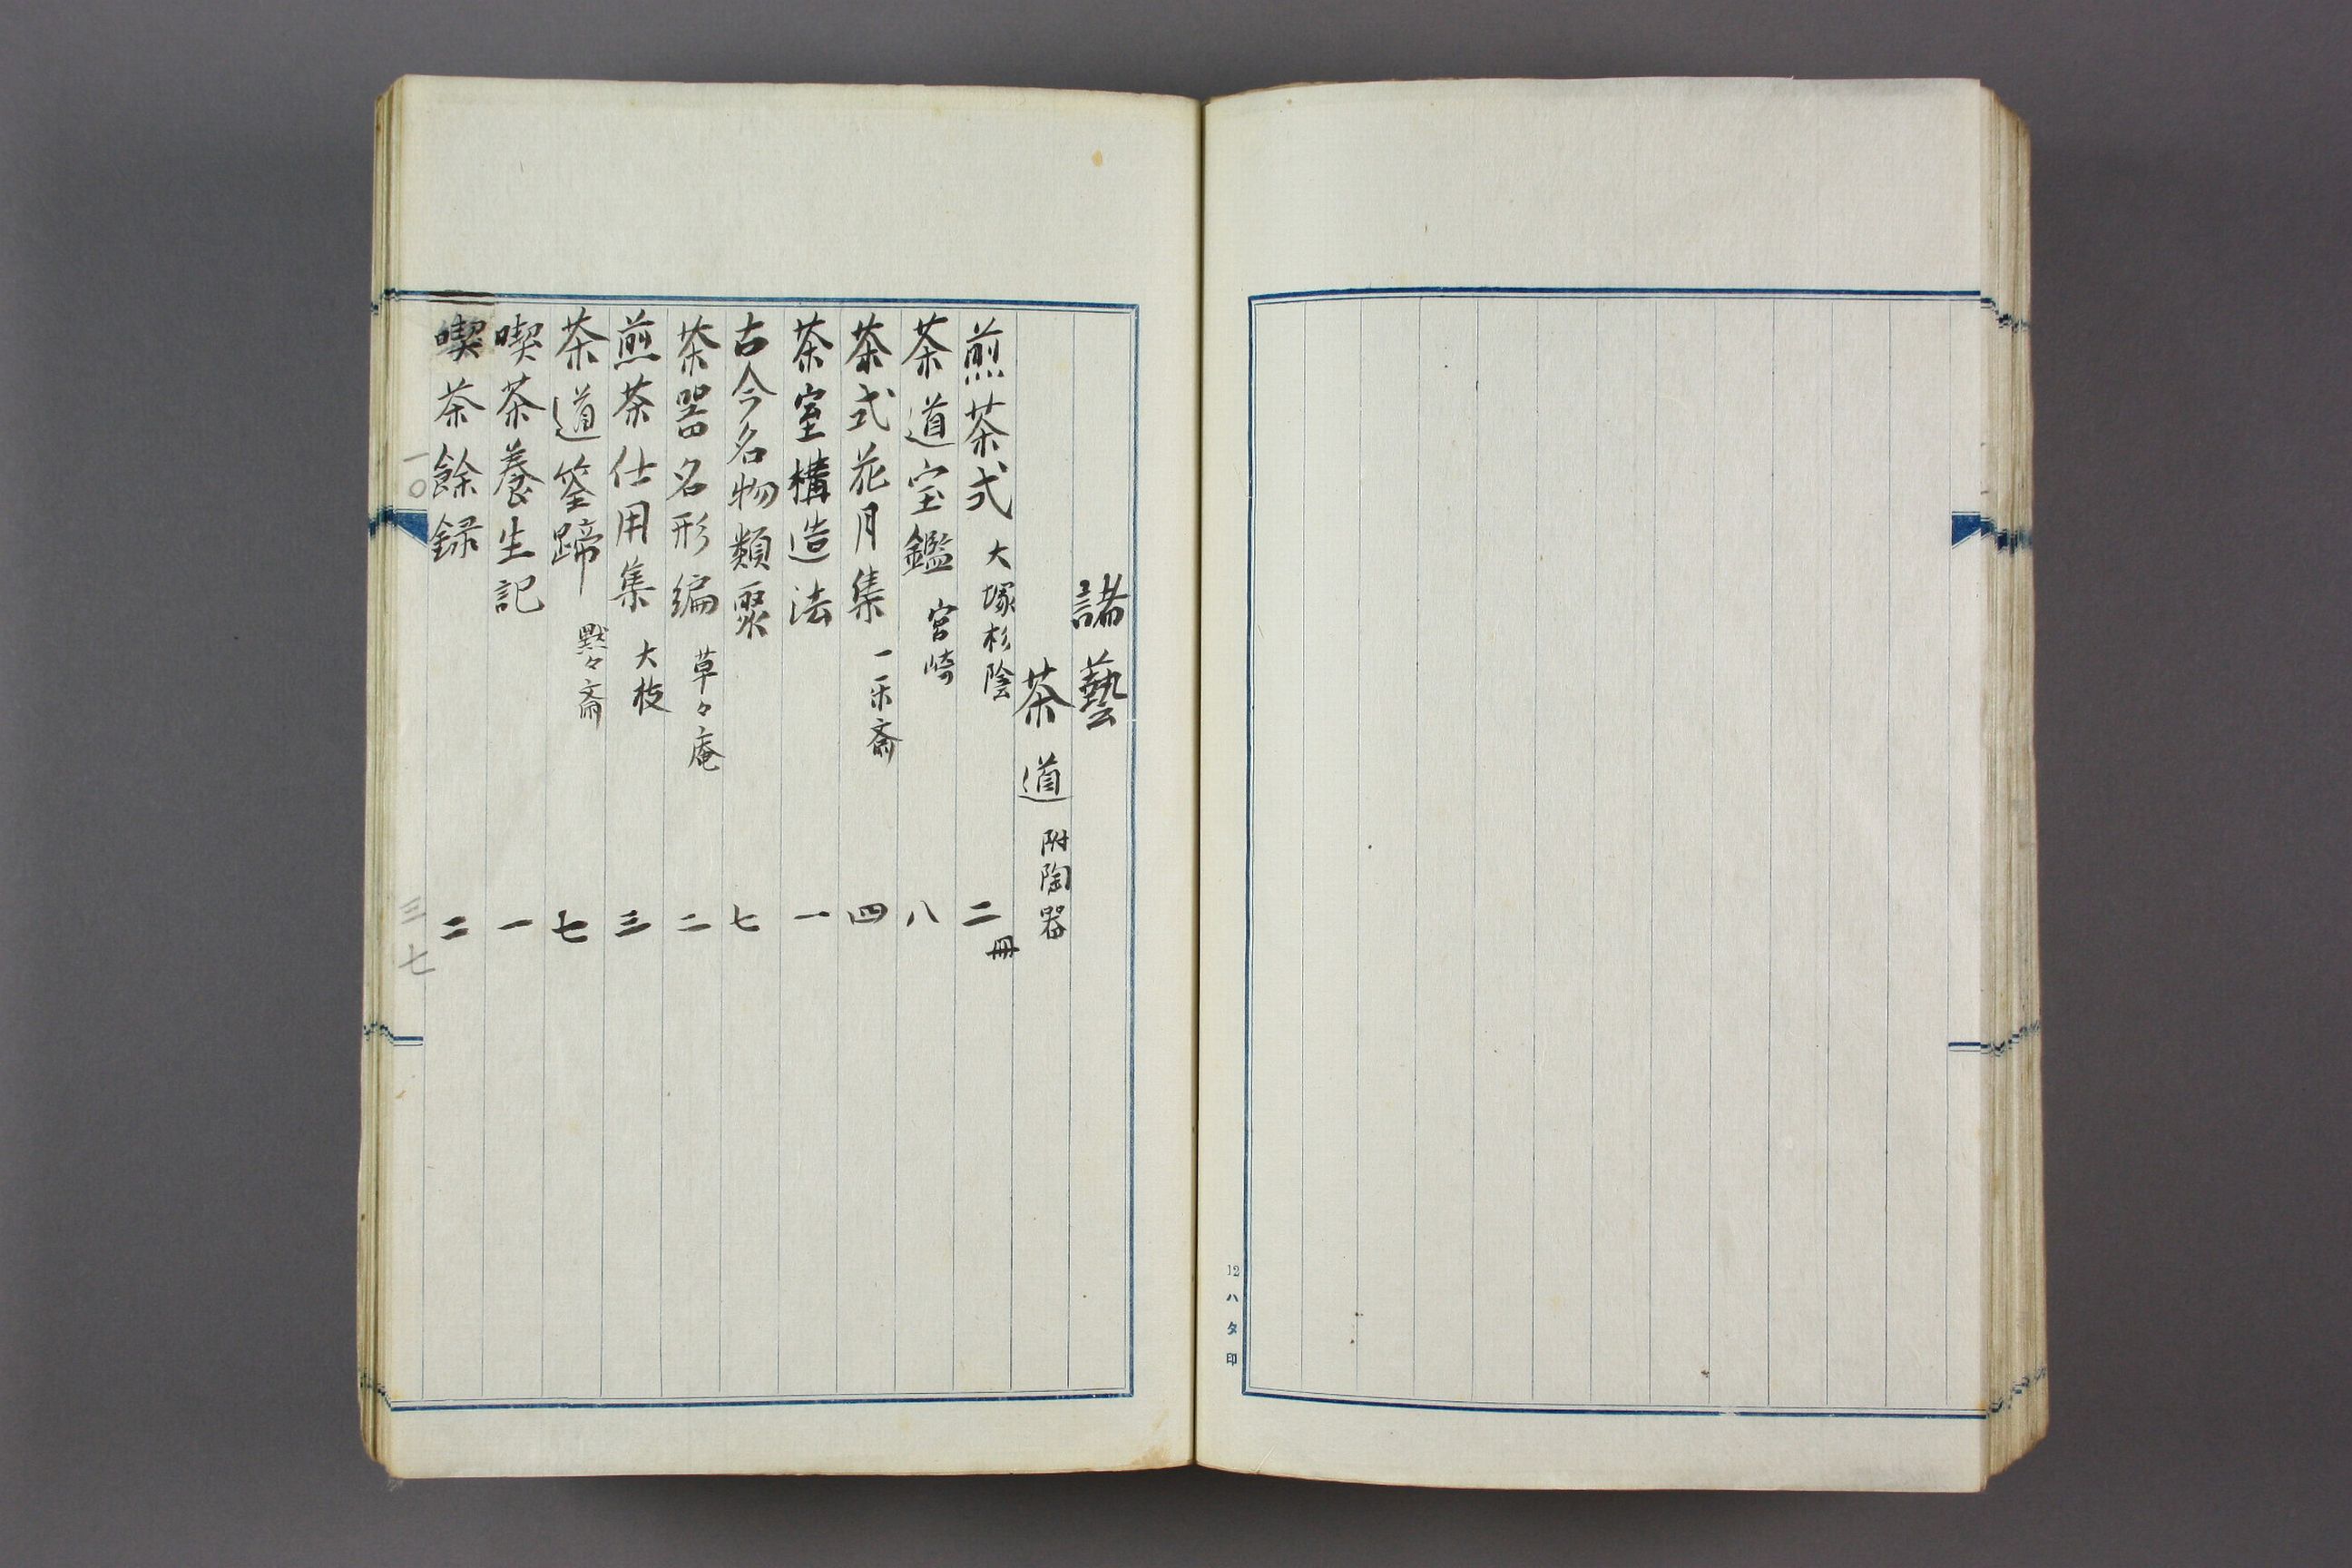 12ハタ印
諸藝
茶道 附陶器
煎茶式 大塚杉陰 二冊
茶道宝鑑 宮崎 八
茶式花月集 一楽斎 四
茶室構造法 一
古今名物類聚 七
茶器名形編 草々庵 二
煎茶仕用集 大枝 三
茶道筌蹄 黙々斎 七
喫茶養生記 一
喫茶餘録 二
一〇 三七